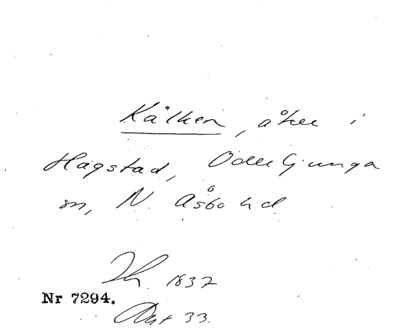 Kälken, åker i
Hagstad, Oderljunga
sn, N. Åsbo hd
1837
Nr 7294.
Akt 33.